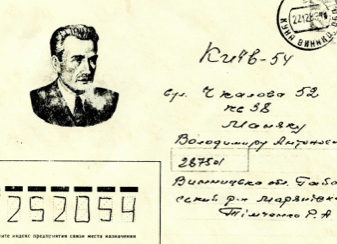 Київ-54
вул. Чкалова 52
кв 38
Маняку
Володимиру Антонови
287501
Винницька обл.
ський р-н Мар'янівка
Тімченко Р.А
252054
ите индекс предприятия связи места назначения